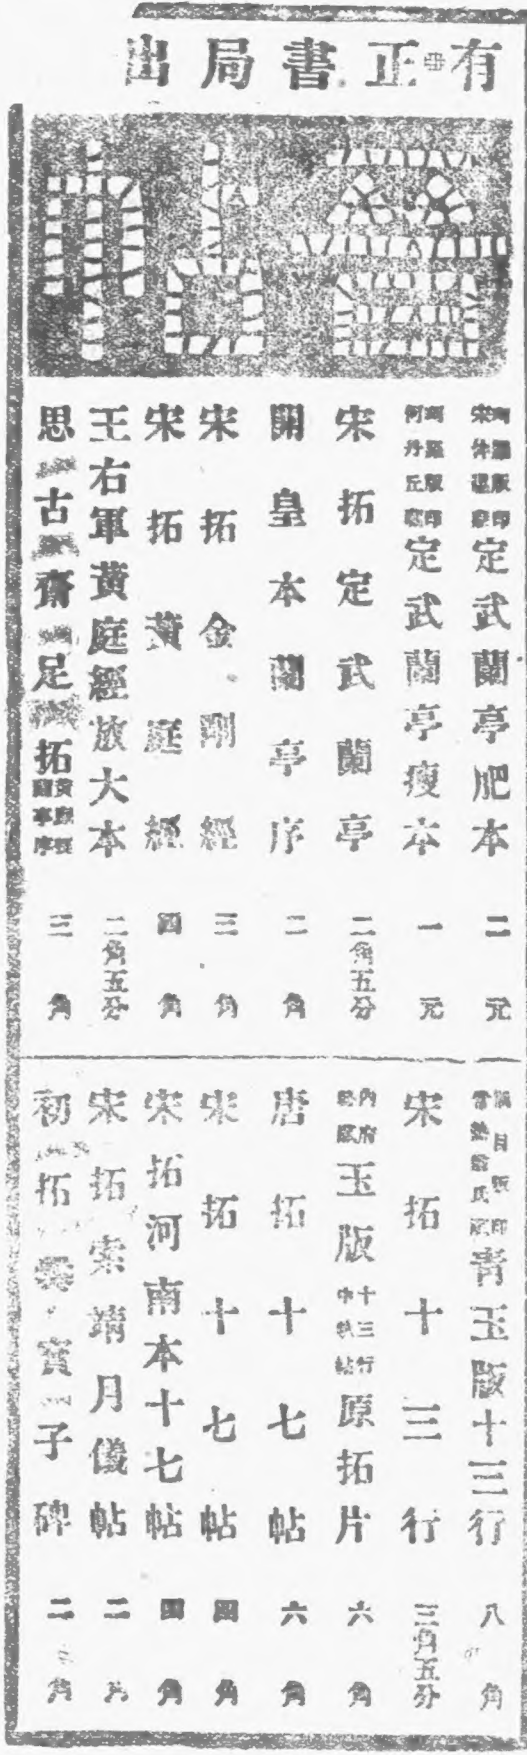 有正書局出
宋休邏 定武蘭亭肥本 二元
珂羅版印 何丹丘藏 定武蘭亭瘦本 一元
宋拓定武蘭亭 二角五分
開皇本蘭亭序 二角
宋拓金剛經 三角
宋拓黃庭經 四角
王右軍黃庭經放大本 二角五分
思古齋 足拓 黃庭經 蘭亭序 三角
青玉版十三行 八角
宋拓十三行 三角五分
內府 玉版 十三行 原拓片 六角
唐拓十七帖 六角
宋拓十七帖 四角
宋拓河南本十七帖 四角
宋拓索靖月儀帖 二角
初拓爨寶子碑 二角